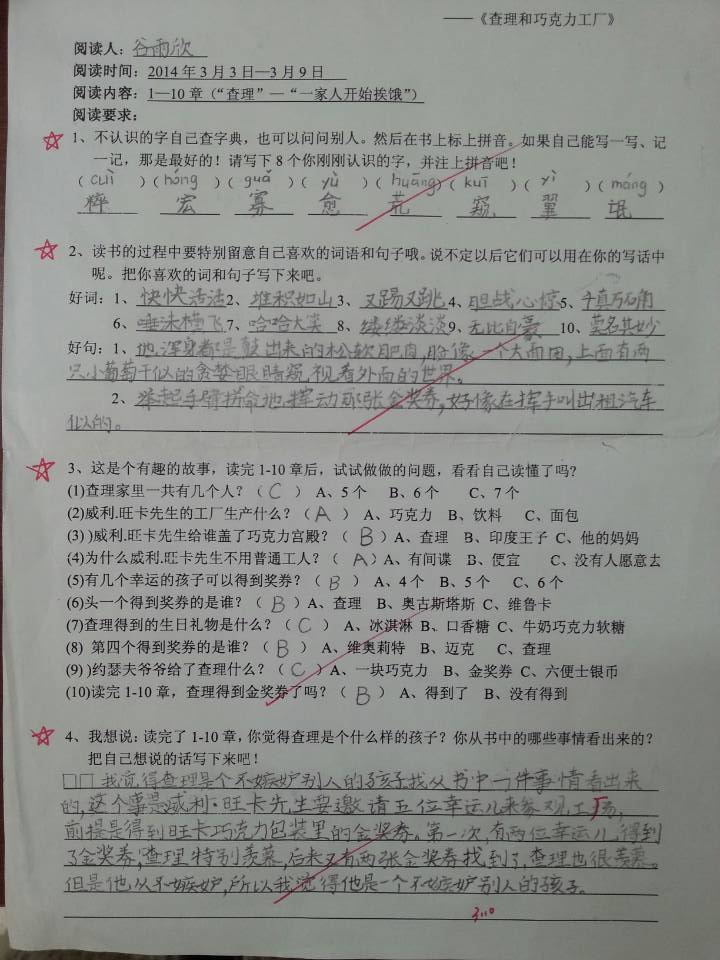 ——《查理和巧克力工厂》
阅读人：谷雨欣
阅读时间：2014年3月3日—3月9日
阅读内容：1—10章（“查理”—“一家人开始挨饿”）
阅读要求：
1、不认识的字自己查字典，也可以问问别人。然后在书上标上拼音。如果自己能写一写、记
一记，那是最好的！请写下8个你刚刚认识的字，并注上拼音吧！
（cuì）（hóng）（guǎ）（yù）（huāng）（kuī）（yì）（máng）
粹 宏 寡 愈 荒 窥 翼 氓
2、读书的过程中要特别留意自己喜欢的词语和句子哦。说不定以后它们可以用在你的写话中
呢。把你喜欢的词和句子写下来吧。
好词：1、快快活活2、堆积如山3、又踢又跳4、胆战心惊5、千真万确
6、唾沫横飞7、哈哈大笑8、缕缕淡淡9、无比自豪10、莫名其妙
好句：1、他浑身都是鼓出来的松软肥肉，脸像一个大面团，上面有两
只小葡萄干似的贪婪眼睛窥视着外面的世界。
2、举起手臂拼命地挥动那张金奖券，好像在挥手叫出租汽车
似的。
3、这是个有趣的故事，读完1-10章后，试试做做的问题，看看自己读懂了吗？
(1)查理家里一共有几个人？（C）A、5个 B、6个 C、7个
(2)威利.旺卡先生的工厂生产什么？（A）A、巧克力 B、饮料 C、面包
(3) )威利.旺卡先生给谁盖了巧克力宫殿？（B）A、查理 B、印度王子 C、他的妈妈
(4)为什么威利.旺卡先生不用普通工人？（A）A、有间谍 B、便宜 C、没有人愿意去
(5)有几个幸运的孩子可以得到奖券？（B）A、4个 B、5个 C、6个
(6)头一个得到奖券的是谁？（B）A、查理 B、奥古斯塔斯 C、维鲁卡
(7)查理得到的生日礼物是什么？（C）A、冰淇淋 B、口香糖 C、牛奶巧克力软糖
(8) 第四个得到奖券的是谁？（B）A、维奥莉特 B、迈克 C、查理
(9) )约瑟夫爷爷给了查理什么？（C）A、一块巧克力 B、金奖券 C、六便士银币
(10)读完1-10章，查理得到金奖券了吗？（B）A、得到了 B、没有得到
4、我想说：读完了1-10章，你觉得查理是个什么样的孩子？你从书中的哪些事情看出来的？
把自己想说的话写下来吧！
□□我觉得查理是个不嫉妒别人的孩子，我从书中一件事情看出来
的，这个事是威利·旺卡先生要邀请五位幸运儿来参观工厂，
前提是得到旺卡巧克力包装里的金奖券。第一次，有两位幸运儿得到
了金奖券，查理特别羡慕，后来又有两张金奖券找到了，查理也很羡慕。
但是他从不嫉妒，所以我觉得他是一个不嫉妒别人的孩子。
3.10